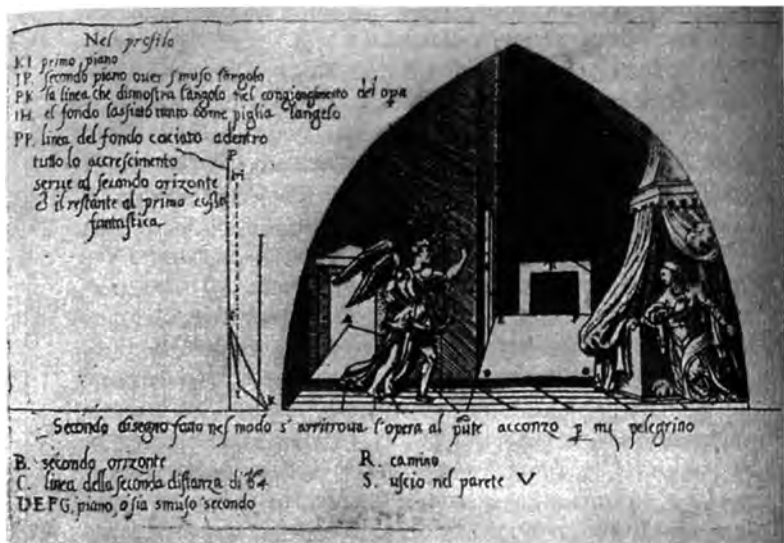 Nel profilo
KI primo piano
IP. secondo piano over smuso l'angolo
PK la linea che dismostra l'angolo nel congiongimento del opa
IH. el fondo lassiato tanto come piglia l'angelo
PP. linea del fondo caciato adentro
tutto lo accrescimento
serve al secondo orizonte
& il restante al primo cosa
fantastica
P
H
K
A
Secondo disegno fatto nel modo s' arritrova l'opera al pute acconzo p mi pelegrino
B. secondo orizonte
C. linea della seconda distanza di
DEFG. piano, o sia smuso secondo
R. camino
S. uscio nel parete V